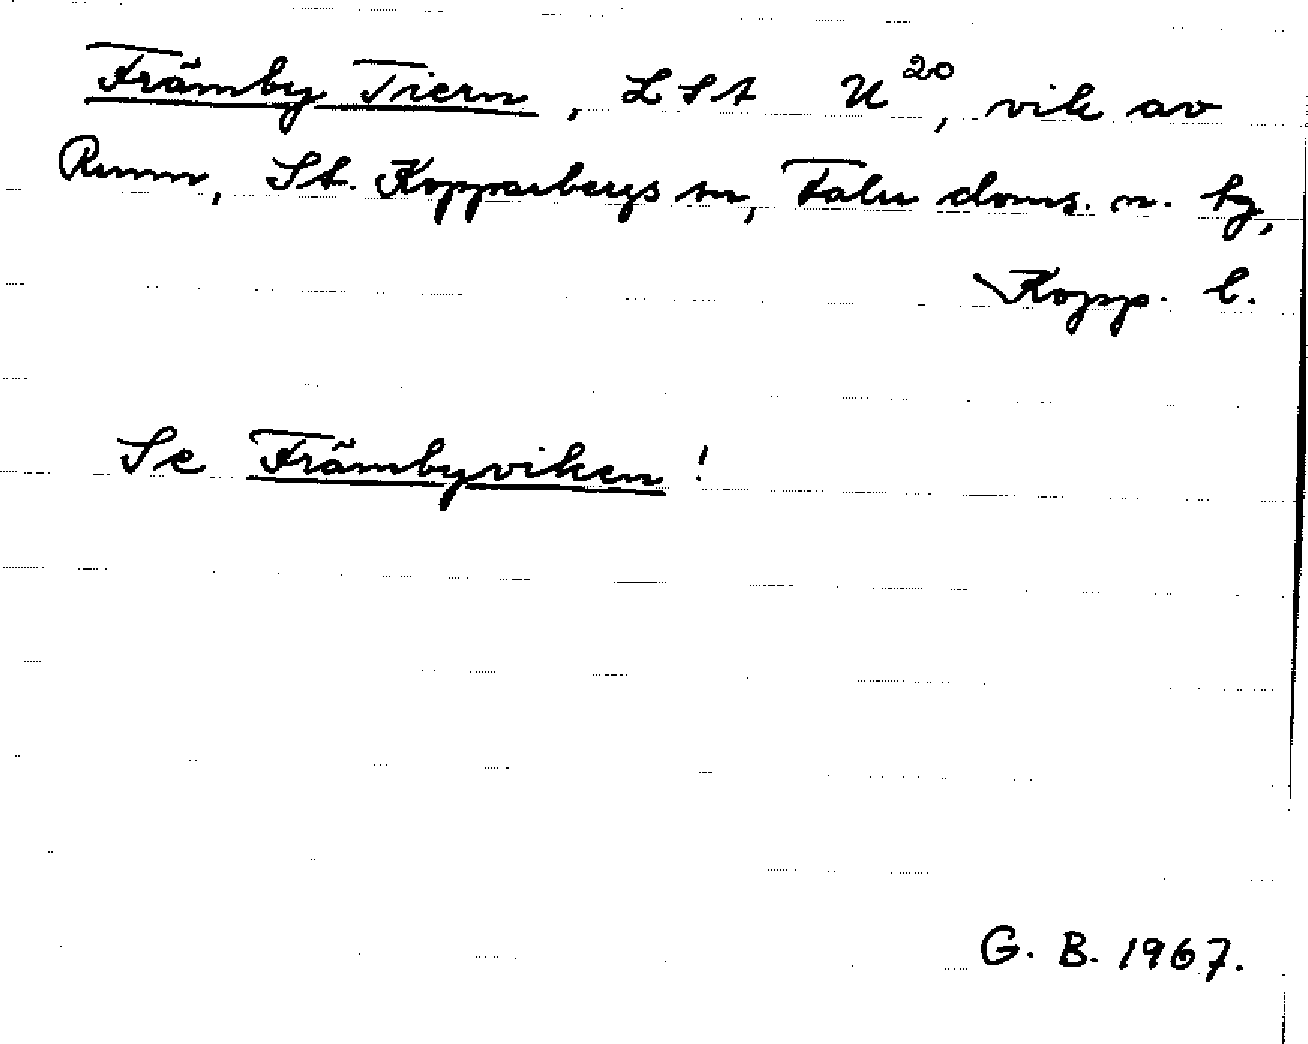 Främby Tiern, LSA U20, vik av
Runn, St. Kopparbergs sn, Falu doms. n. tg,
Kopp. l.
Se Främbyviken!
G. B. 1967.